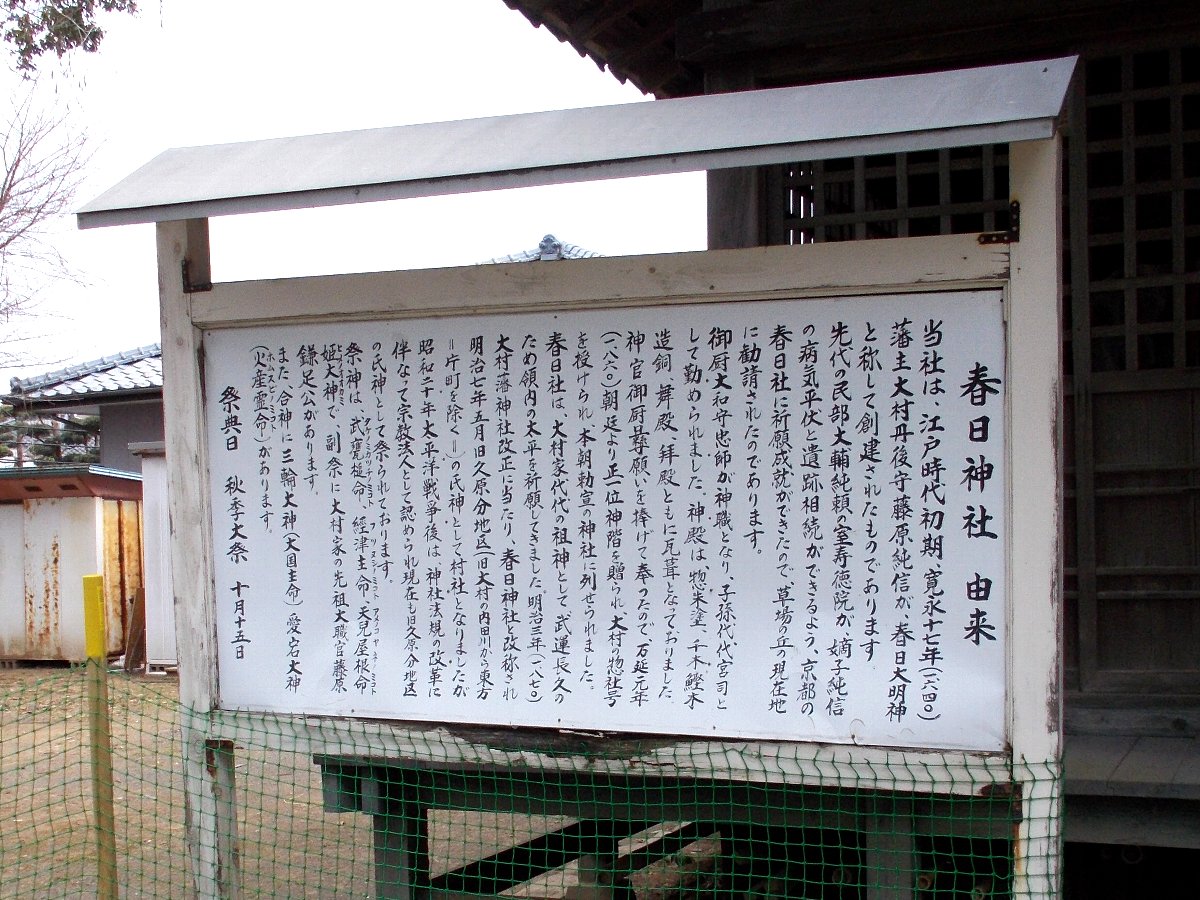 春日神社 由来
当社は、江戸時代初期、寛永十七年(一六四〇)
藩主大村丹後守藤原純信が、春日大明神
と称して創建されたものであります
先代の民部大輔純頼の室寿徳院が嫡子純信
の病気平伏と遺跡相続ができるよう、京都の
春日社に祈願成就ができたので、草場の丘の現在地
に勧請されたのであります。
御厨大和守忠師が神職となり、子孫代代宮司と
して勤められました。神殿は、惣朱塗、千木鰹木
造銅、舞殿、拝殿ともに瓦葺となっておりました
神官御厨 願いを捧げて奉ったので、万延元年
(一八六〇)朝廷より正一位神階を贈られ大村の惣社号
を授けられ、本朝勅宣の神社に列せられました。
春日社は、大村家代代の祖神として、武運長久の
ため領内の太平を祈願してきました。明治三年(一八七〇)
大村藩神社改正に当たり、春日神社と改称され
明治七年五月旧久原分地区(旧大村の内田川から東方
=片町を除く=)の氏神として村社となりましたが
昭和二十年太平洋戦争後は、神社法規の改革に
伴なって宗教法人として認められ現在も旧久原分地区
の氏神として祭られております。
祭神は、武甕槌命 経津主命 天児屋根命
姫大神で、副祭に大村家の先祖大職官藤原
鎌足公があります。
また合神に三輪大神(大国主命)愛宕大神
(火産霊命)があります。
祭典日 秋季大祭 十月十五日